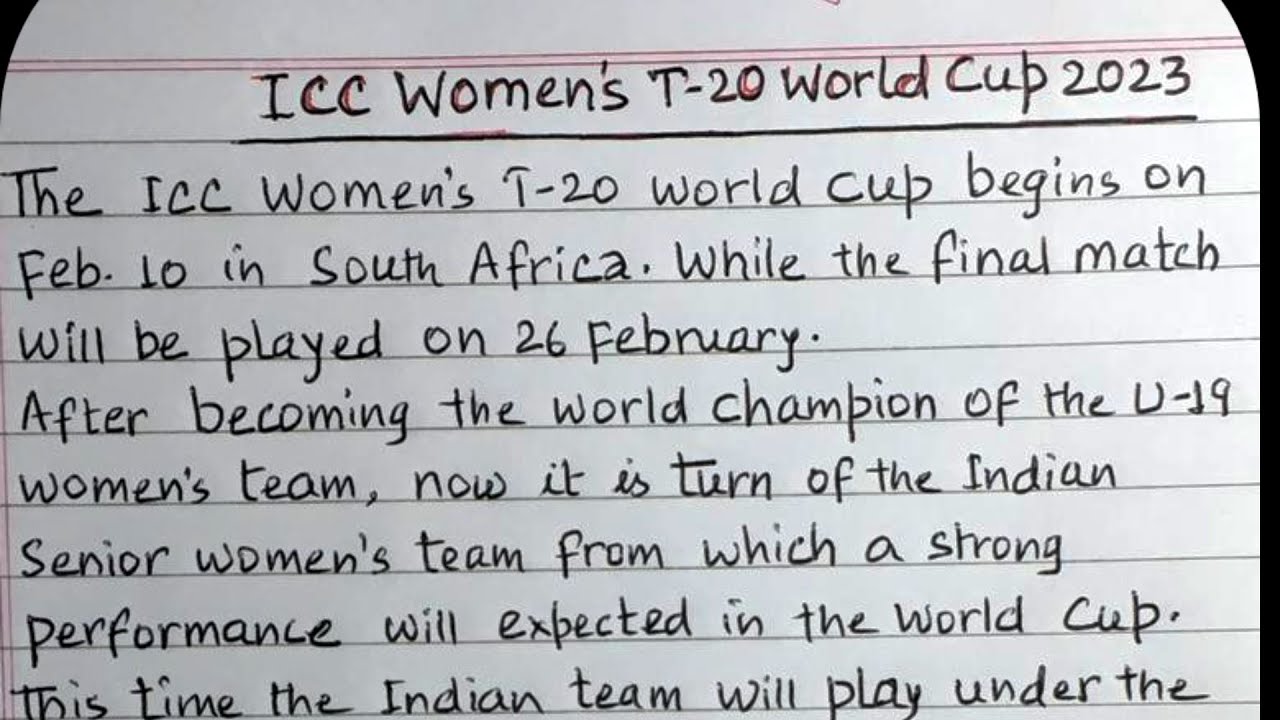 ICC Women's T-20 World Cup 2023
The ICC Women's T-20 world cup begins on
Feb. 10 in South Africa. While the final match
will be played on 26 February.
After becoming the world champion of the U-19
women's team, now it is turn of the Indian
Senior women's team from which a strong
performance will expected in the World Cup.
This time the Indian team will play under the